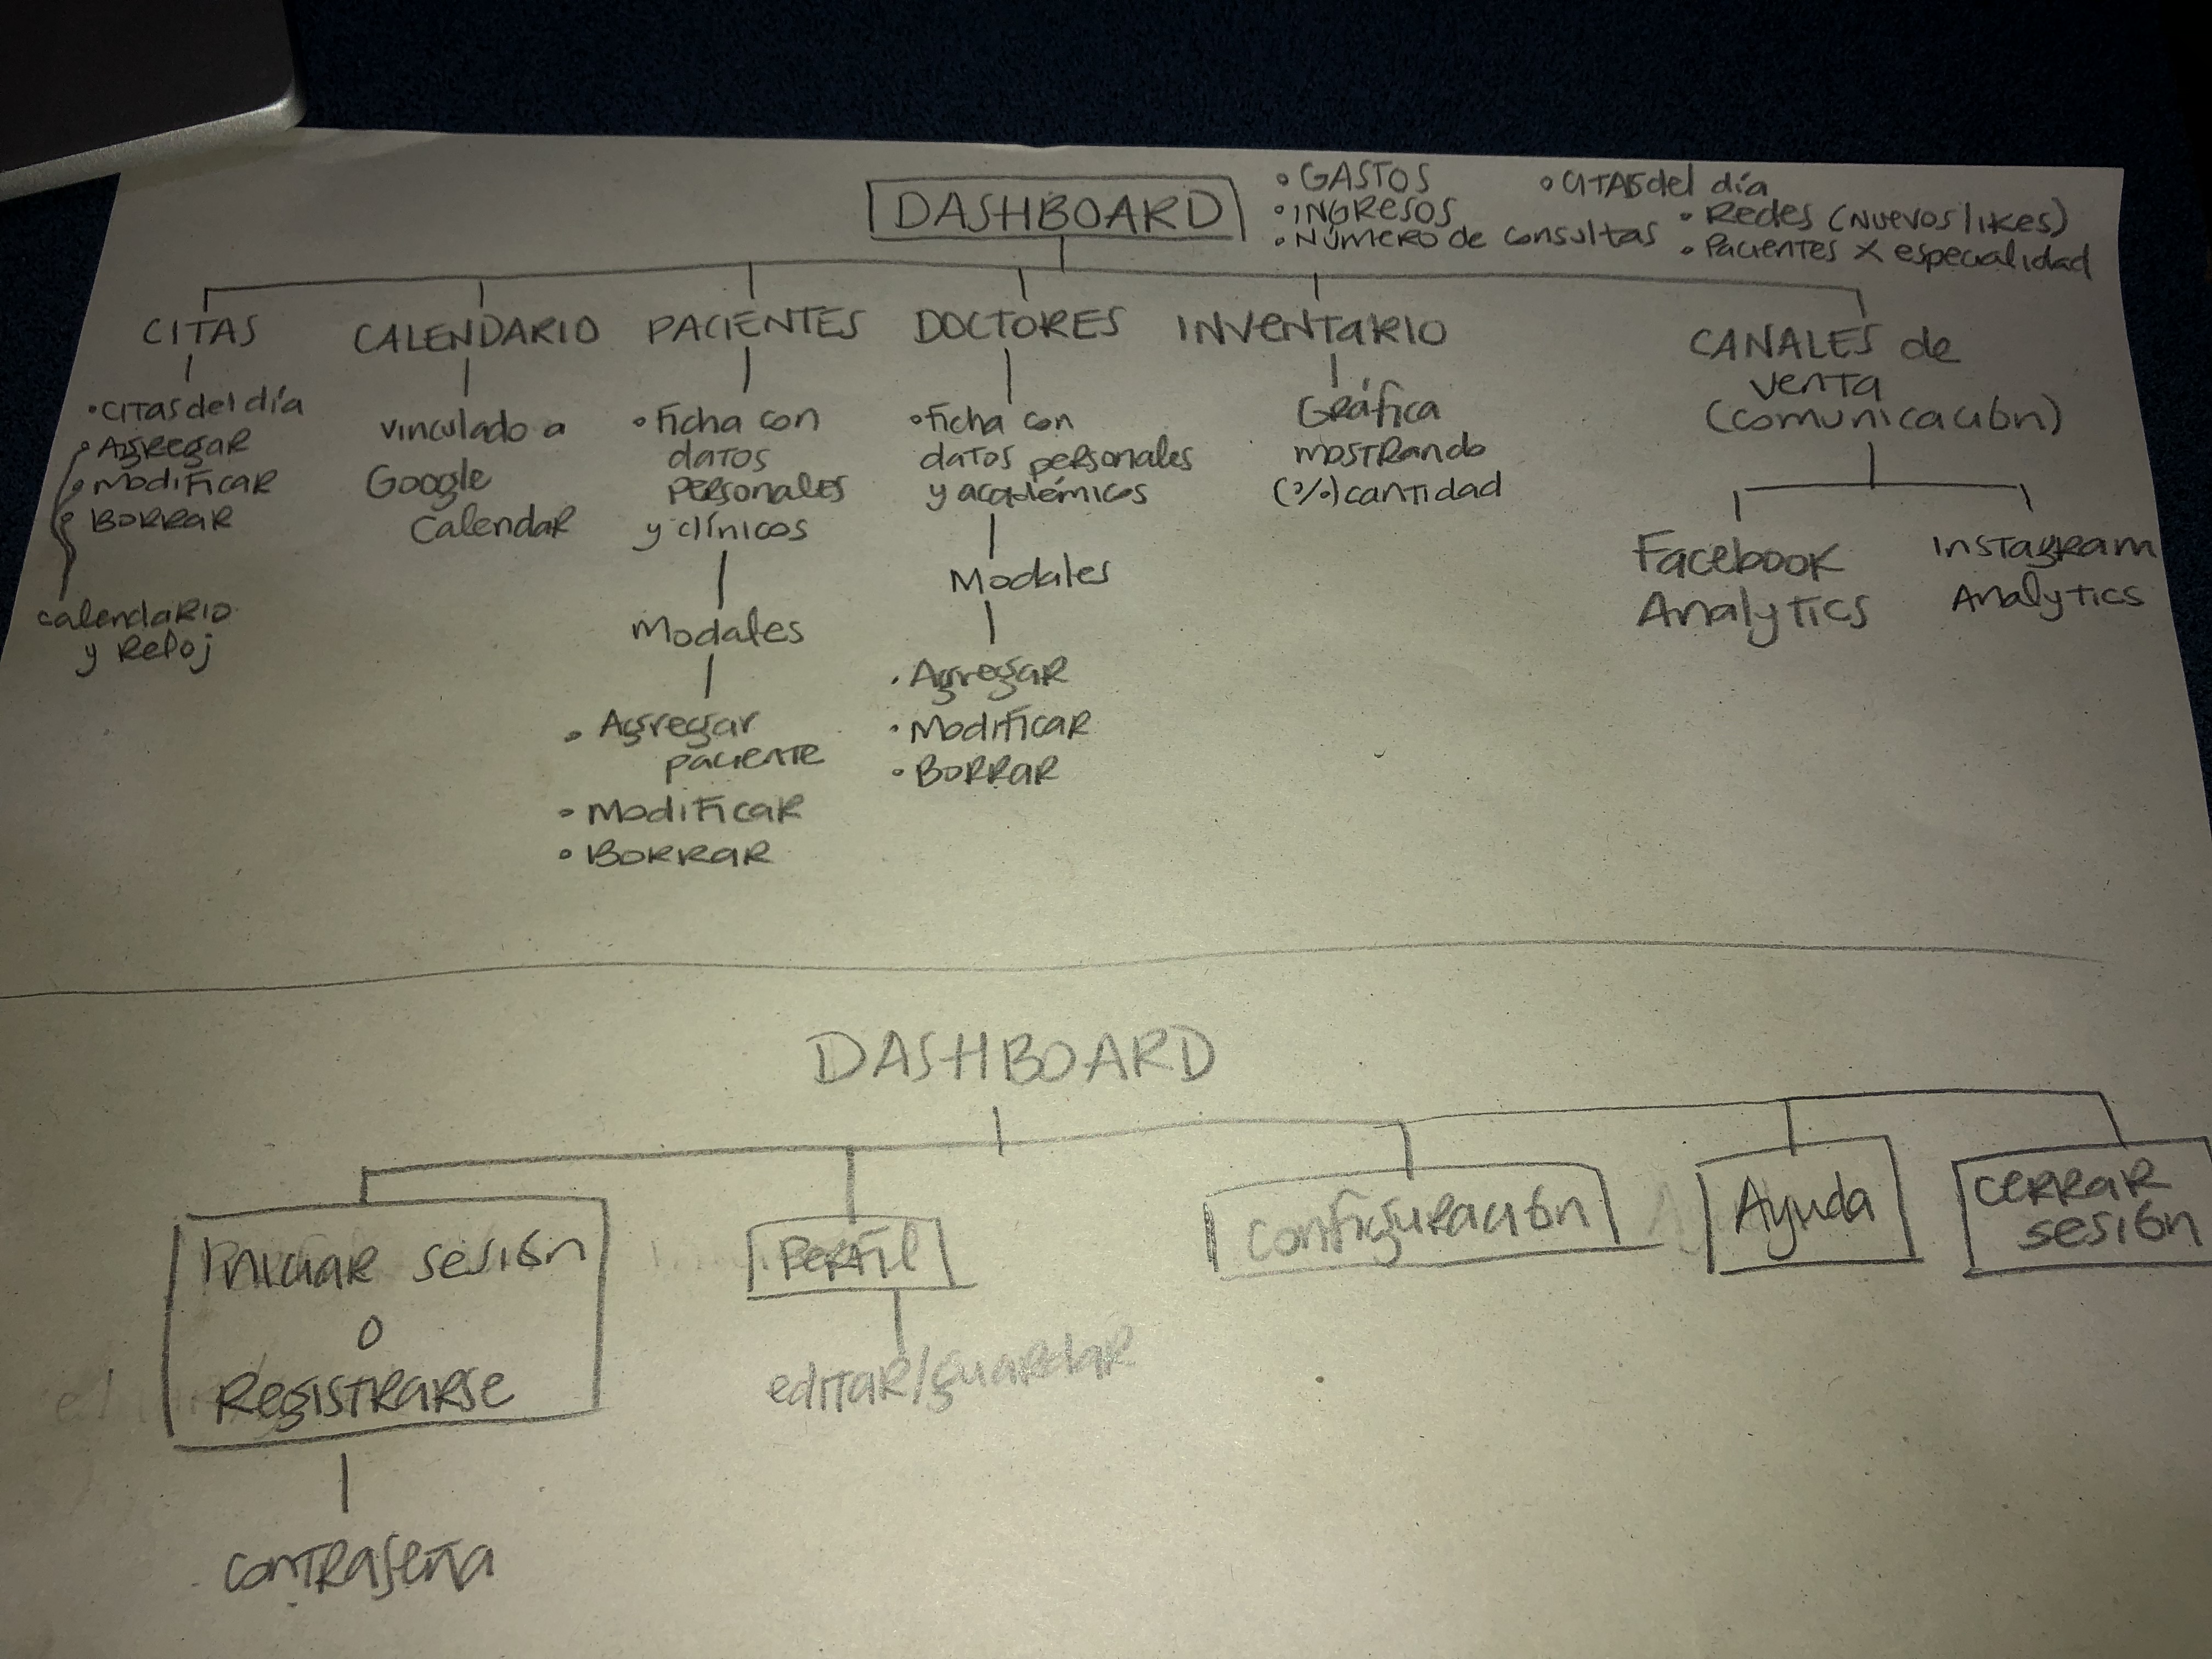 DASHBOARD
• GASTOS
• INGRESOS
• NÚMERO de consultas
• CITAS del día
• Redes (Nuevos likes)
• Pacientes x especialidad
CITAS
• CITAS del día
• Agregar
• Modificar
• Borrar
calendario
y Reloj
CALENDARIO
vinculado a
Google
Calendar
PACIENTES
• Ficha con
datos
personales
y clínicos
Modales
• Agregar
paciente
• Modificar
• Borrar
DOCTORES
• Ficha con
datos personales
y académicos
Modales
• Agregar
• Modificar
• Borrar
INVENTARIO
Gráfica
mostrando
(%) cantidad
CANALES de
venta
(comunicación)
Facebook
Analytics
Instagram
Analytics
DASHBOARD
Iniciar sesión
o
Registrarse
contraseña
Perfil
editar/guardar
Configuración
Ayuda
Cerrar
sesión